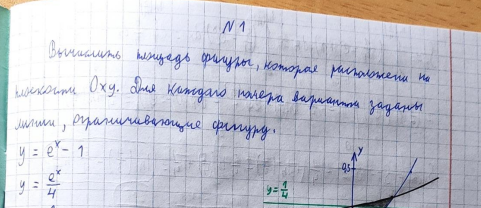 N 1
Вычислить площадь фигуры, которая расположена на
плоскости Oxy. Для каждого номера варианта заданы
линии, ограничивающие фигуру.
y = eˣ - 1
y = eˣ/4
y
0,5
y = 1/4